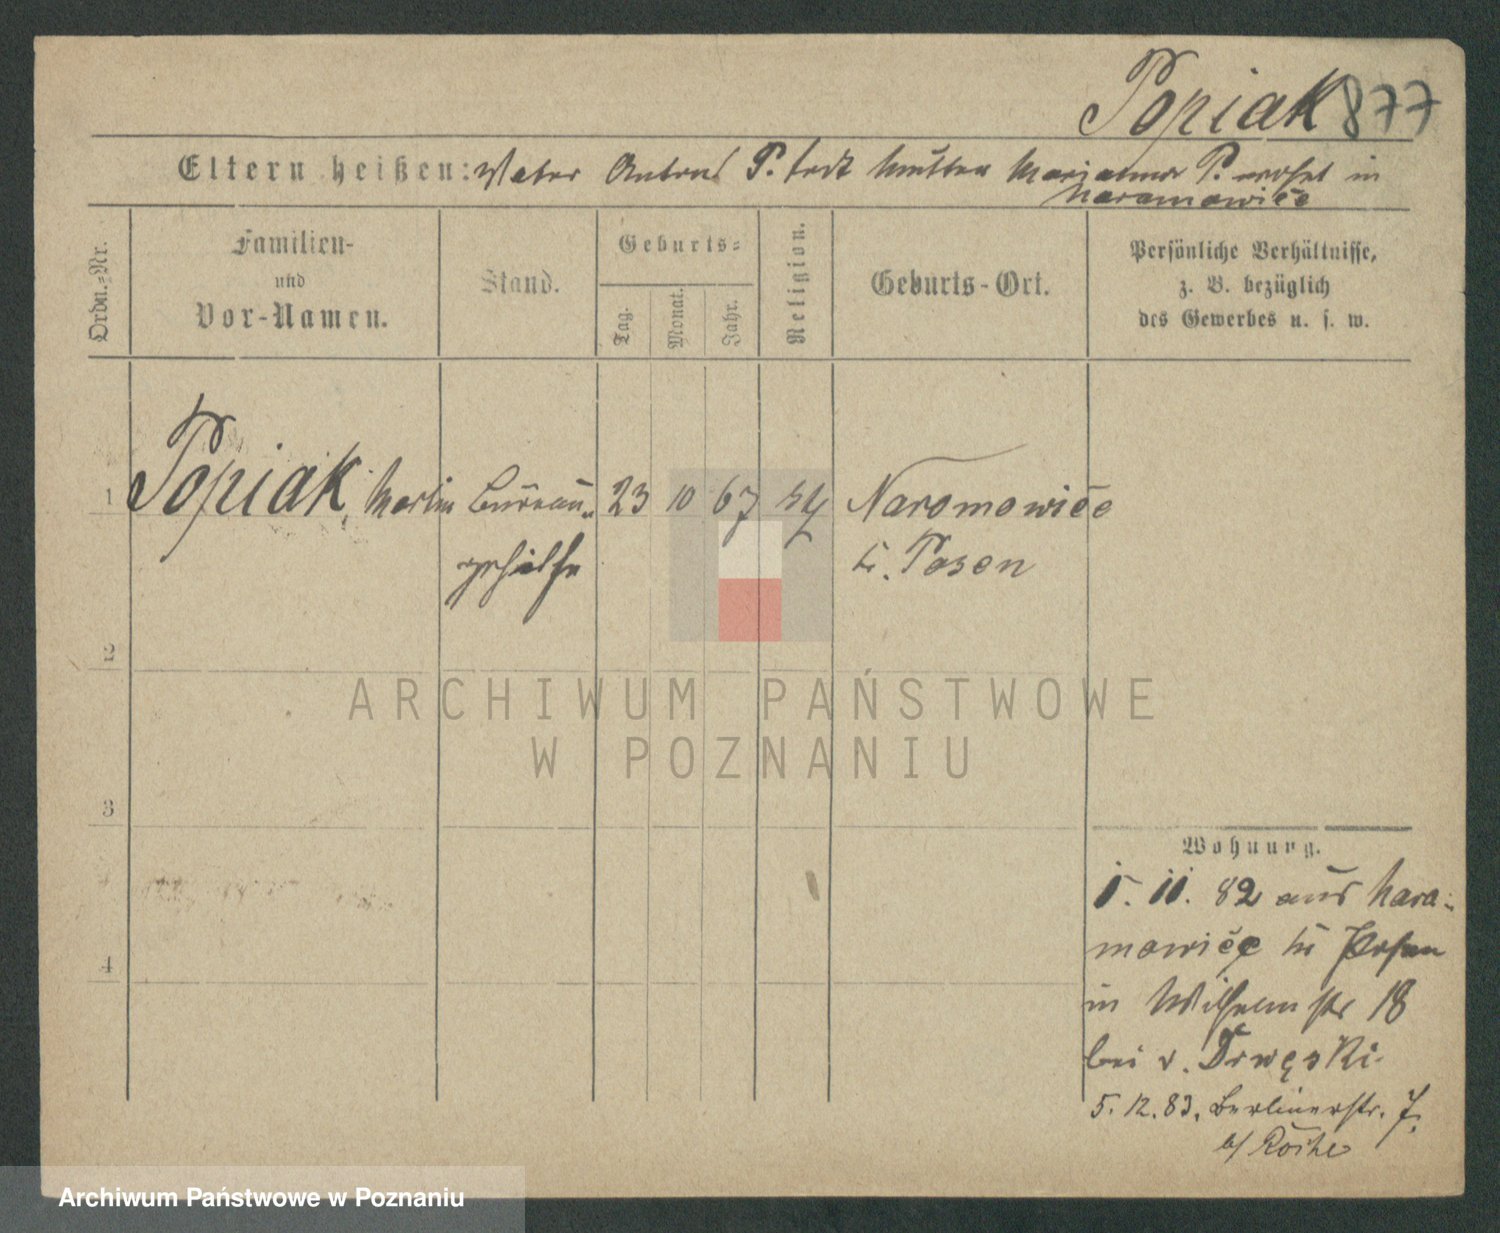 Popiak 877
Eltern heißen: Vater Anton P. todt Mutter Marianna P. wohnt in
Naramowice
Ordn.-Nr.
Familien-
und
Vor-Namen.
Stand.
Geburts-
Tag.
Monat.
Jahr.
Religion.
Geburts-Ort.
Persönliche Verhältnisse,
z. B. bezüglich
des Gewerbes u. s. w.
1 Popiak, Martin Bureau- 23 10 67 Naromowice
gehülfe Posen
2
3
4
Wohnung.
5. 11. 82 aus Nara-
mowice zu Posen
in Wilhelmstr 18
bei v. Drwęski
5. 12. 83. Berlinerstr. 7.
b/ Röthe
ARCHIWUM PAŃSTWOWE
W POZNANIU
Archiwum Państwowe w Poznaniu